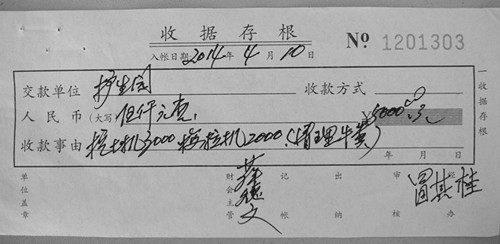 收据存根
入帐日期 2014年 4月 10日
№ 1201303
交款单位 护生园 收款方式
人民币(大写) 伍仟元整 ¥5000.00元
收款事由 挖土机3000 模粒机2000.(清理牛粪)
年 月 日
单位盖章 财会主管 记帐 出纳 审核 经办
冒其桂
收据存根